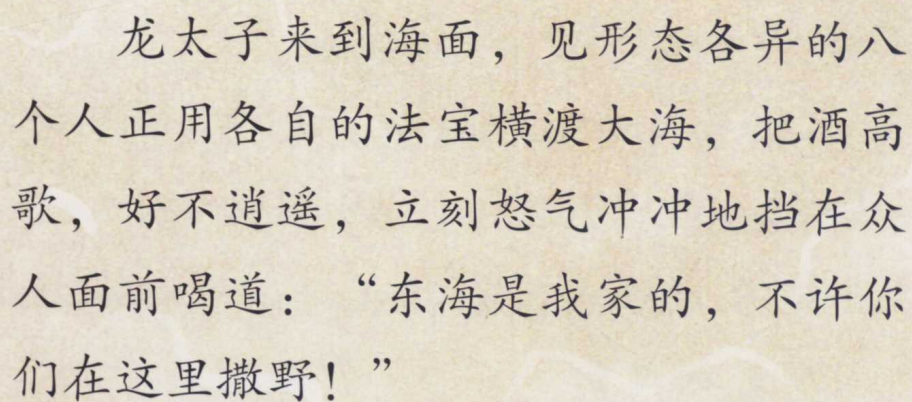 龙太子来到海面，见形态各异的八
个人正用各自的法宝横渡大海，把酒高
歌，好不逍遥，立刻怒气冲冲地挡在众
人面前喝道：“东海是我家的，不许你
们在这里撒野！”